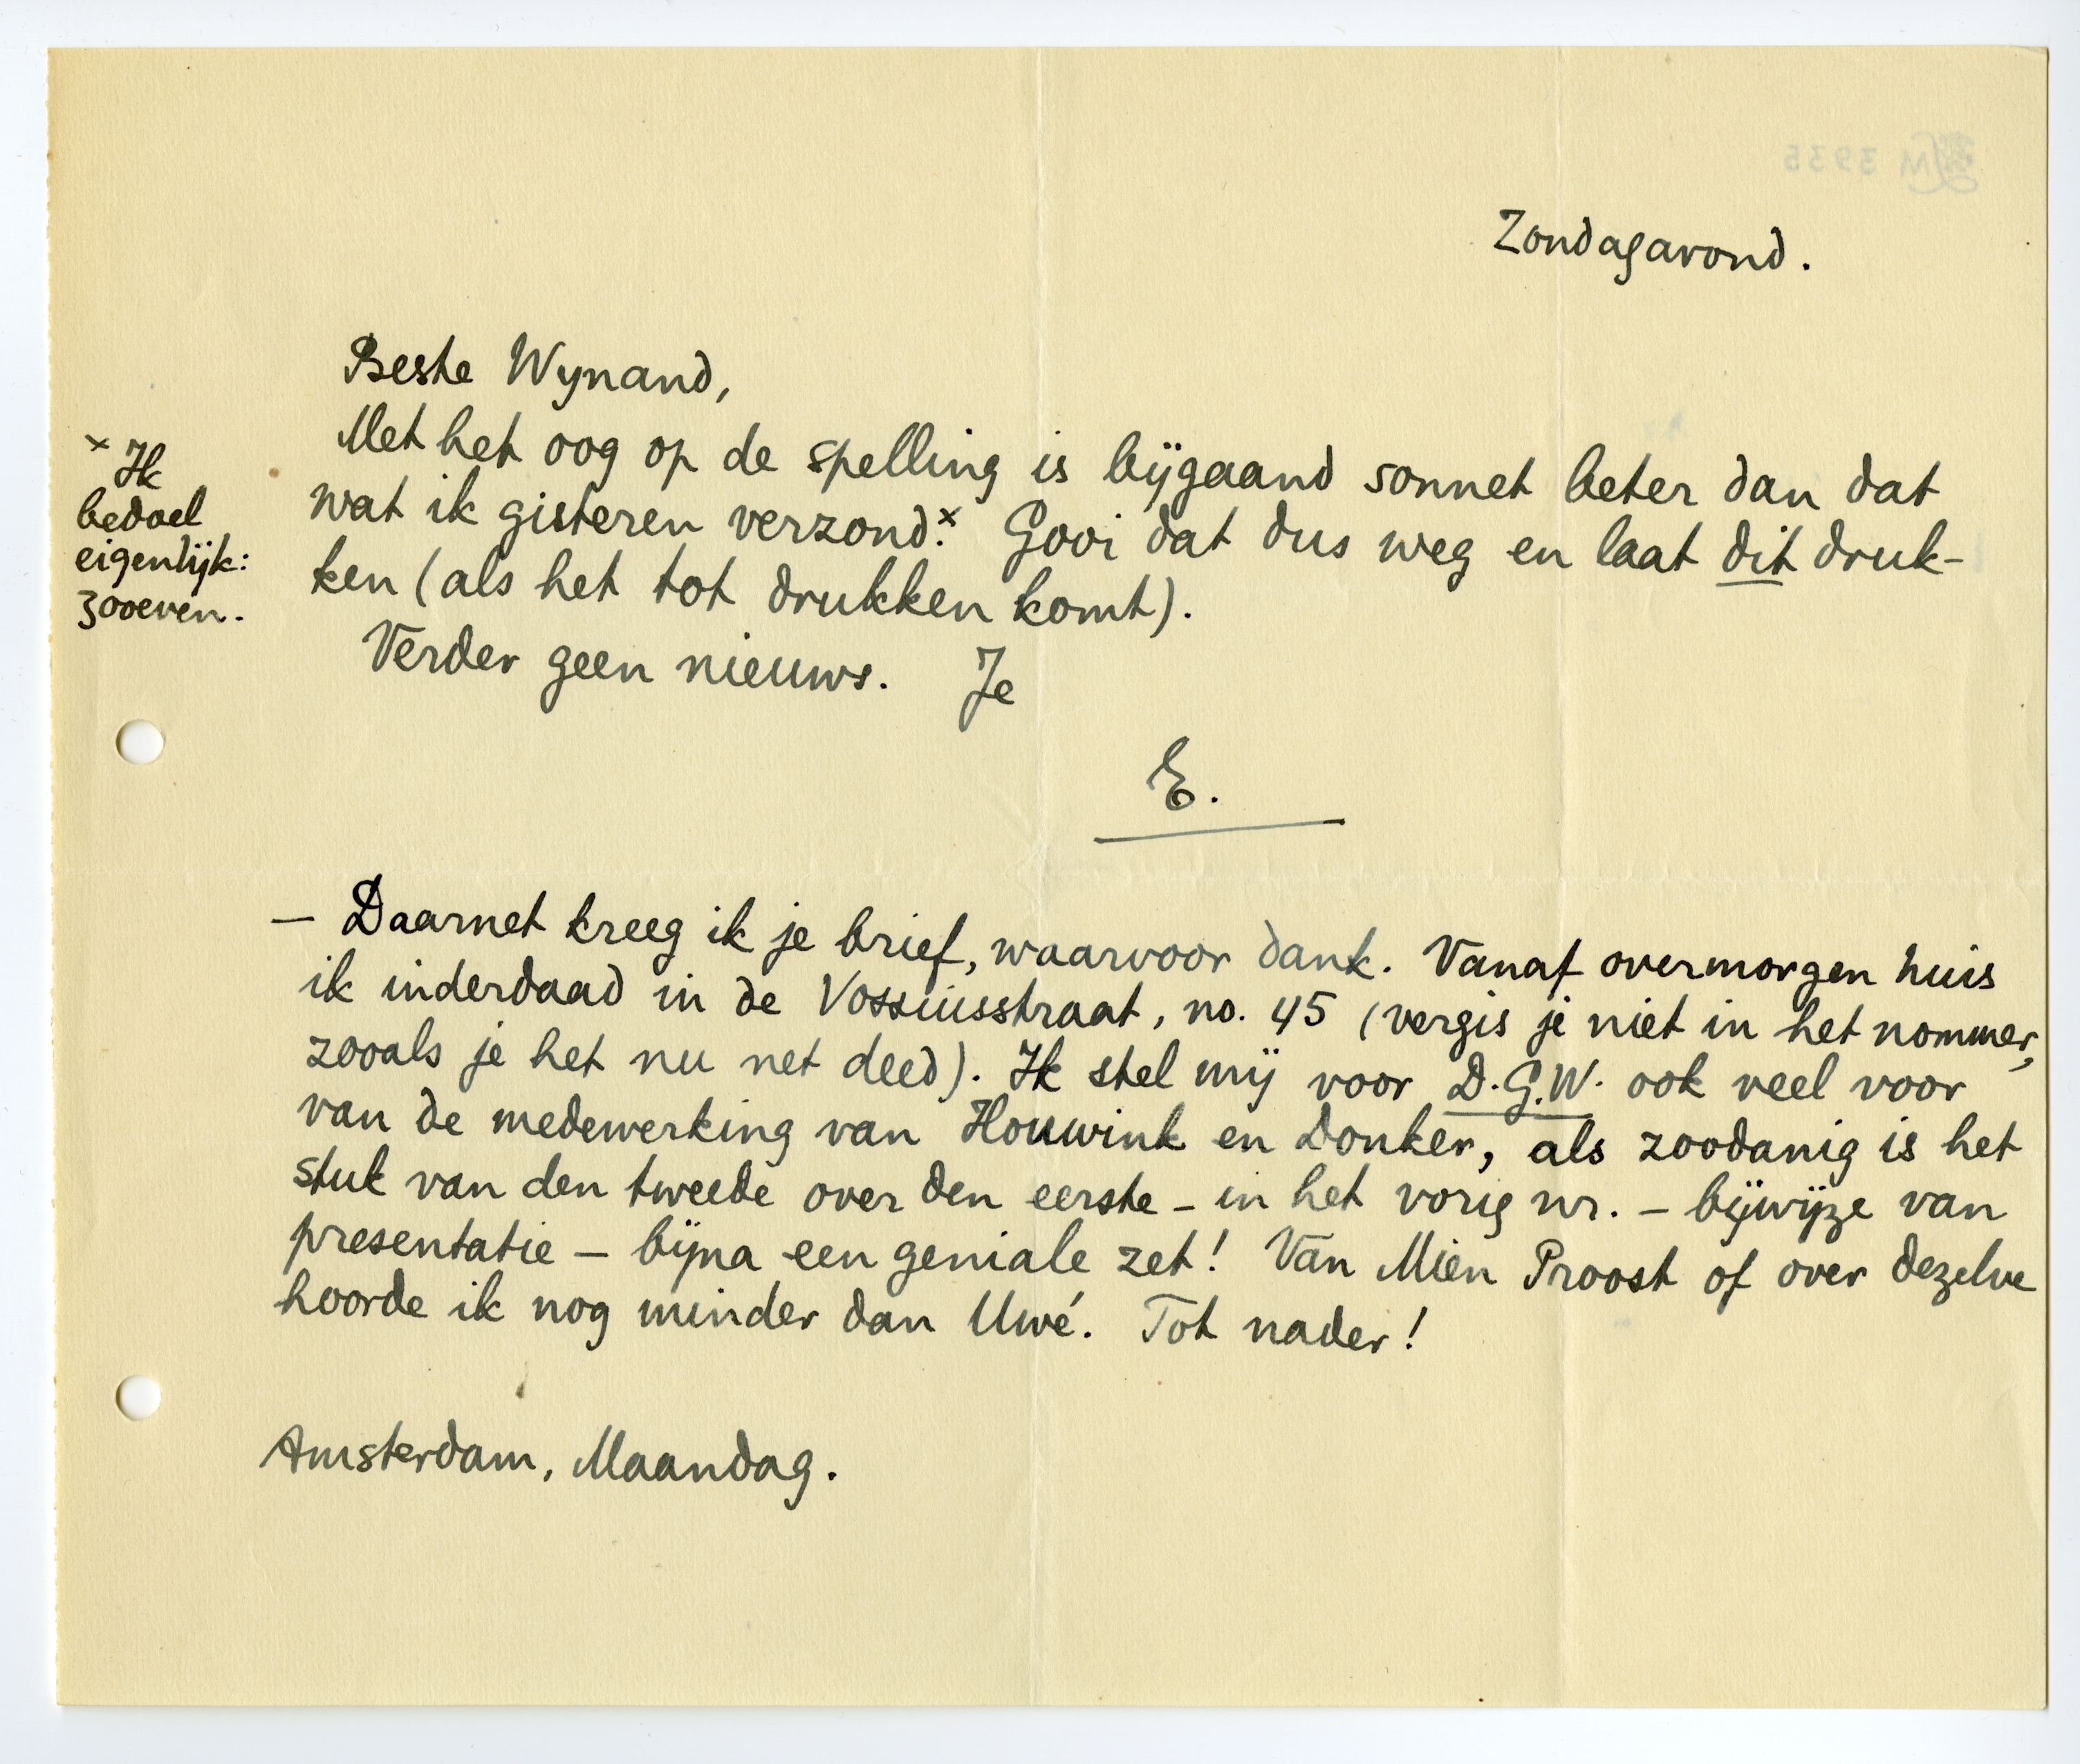 Zondagavond.
Beste Wynand,
Met het oog op de spelling is bijgaand sonnet beter dan dat
wat ik gisteren verzond.ˣ Gooi dat dus weg en laat dit druk-
ken (als het tot drukken komt).
Verder geen nieuws. Je
E.
ˣ Ik
bedoel
eigenlijk:
zooeven.
— Daarnet kreeg ik je brief, waarvoor dank. Vanaf overmorgen huis
ik inderdaad in de Vossiusstraat, no. 45 (vergis je niet in het nommer,
zooals je het nu net deed). Ik stel mij voor D.G.W. ook veel voor
van de medewerking van Houwink en Donker, als zoodanig is het
stuk van den tweede over den eerste – in het vorig nr. – bijwijze van
presentatie – bijna een geniale zet! Van Mien Proost of over dezelve
hoorde ik nog minder dan Uwé. Tot nader!
Amsterdam, Maandag.